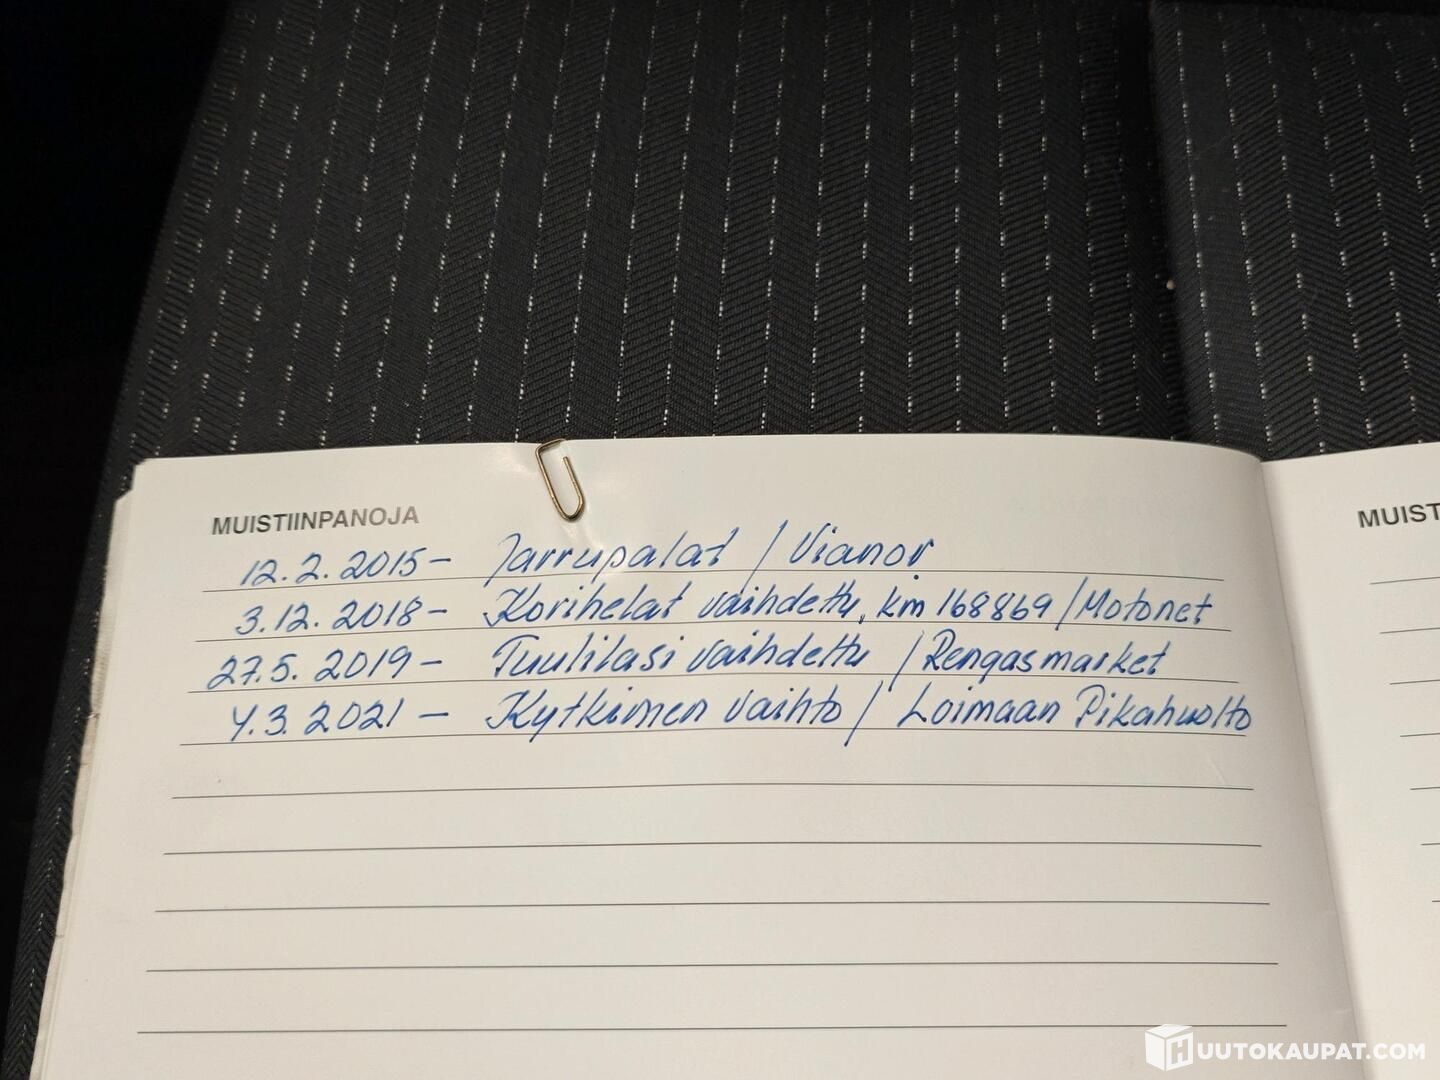 MUISTIINPANOJA
12.2.2015 - Jarrupalat / Vianor
3.12.2018 - Korihelat vaihdettu, km 168869 / Motonet
27.5.2019 - Tuulilasi vaihdettu / Rengasmarket
4.3.2021 - Kytkimen vaihto / Loimaan Pikahuolto
MUIST
HUUTOKAUPAT.COM